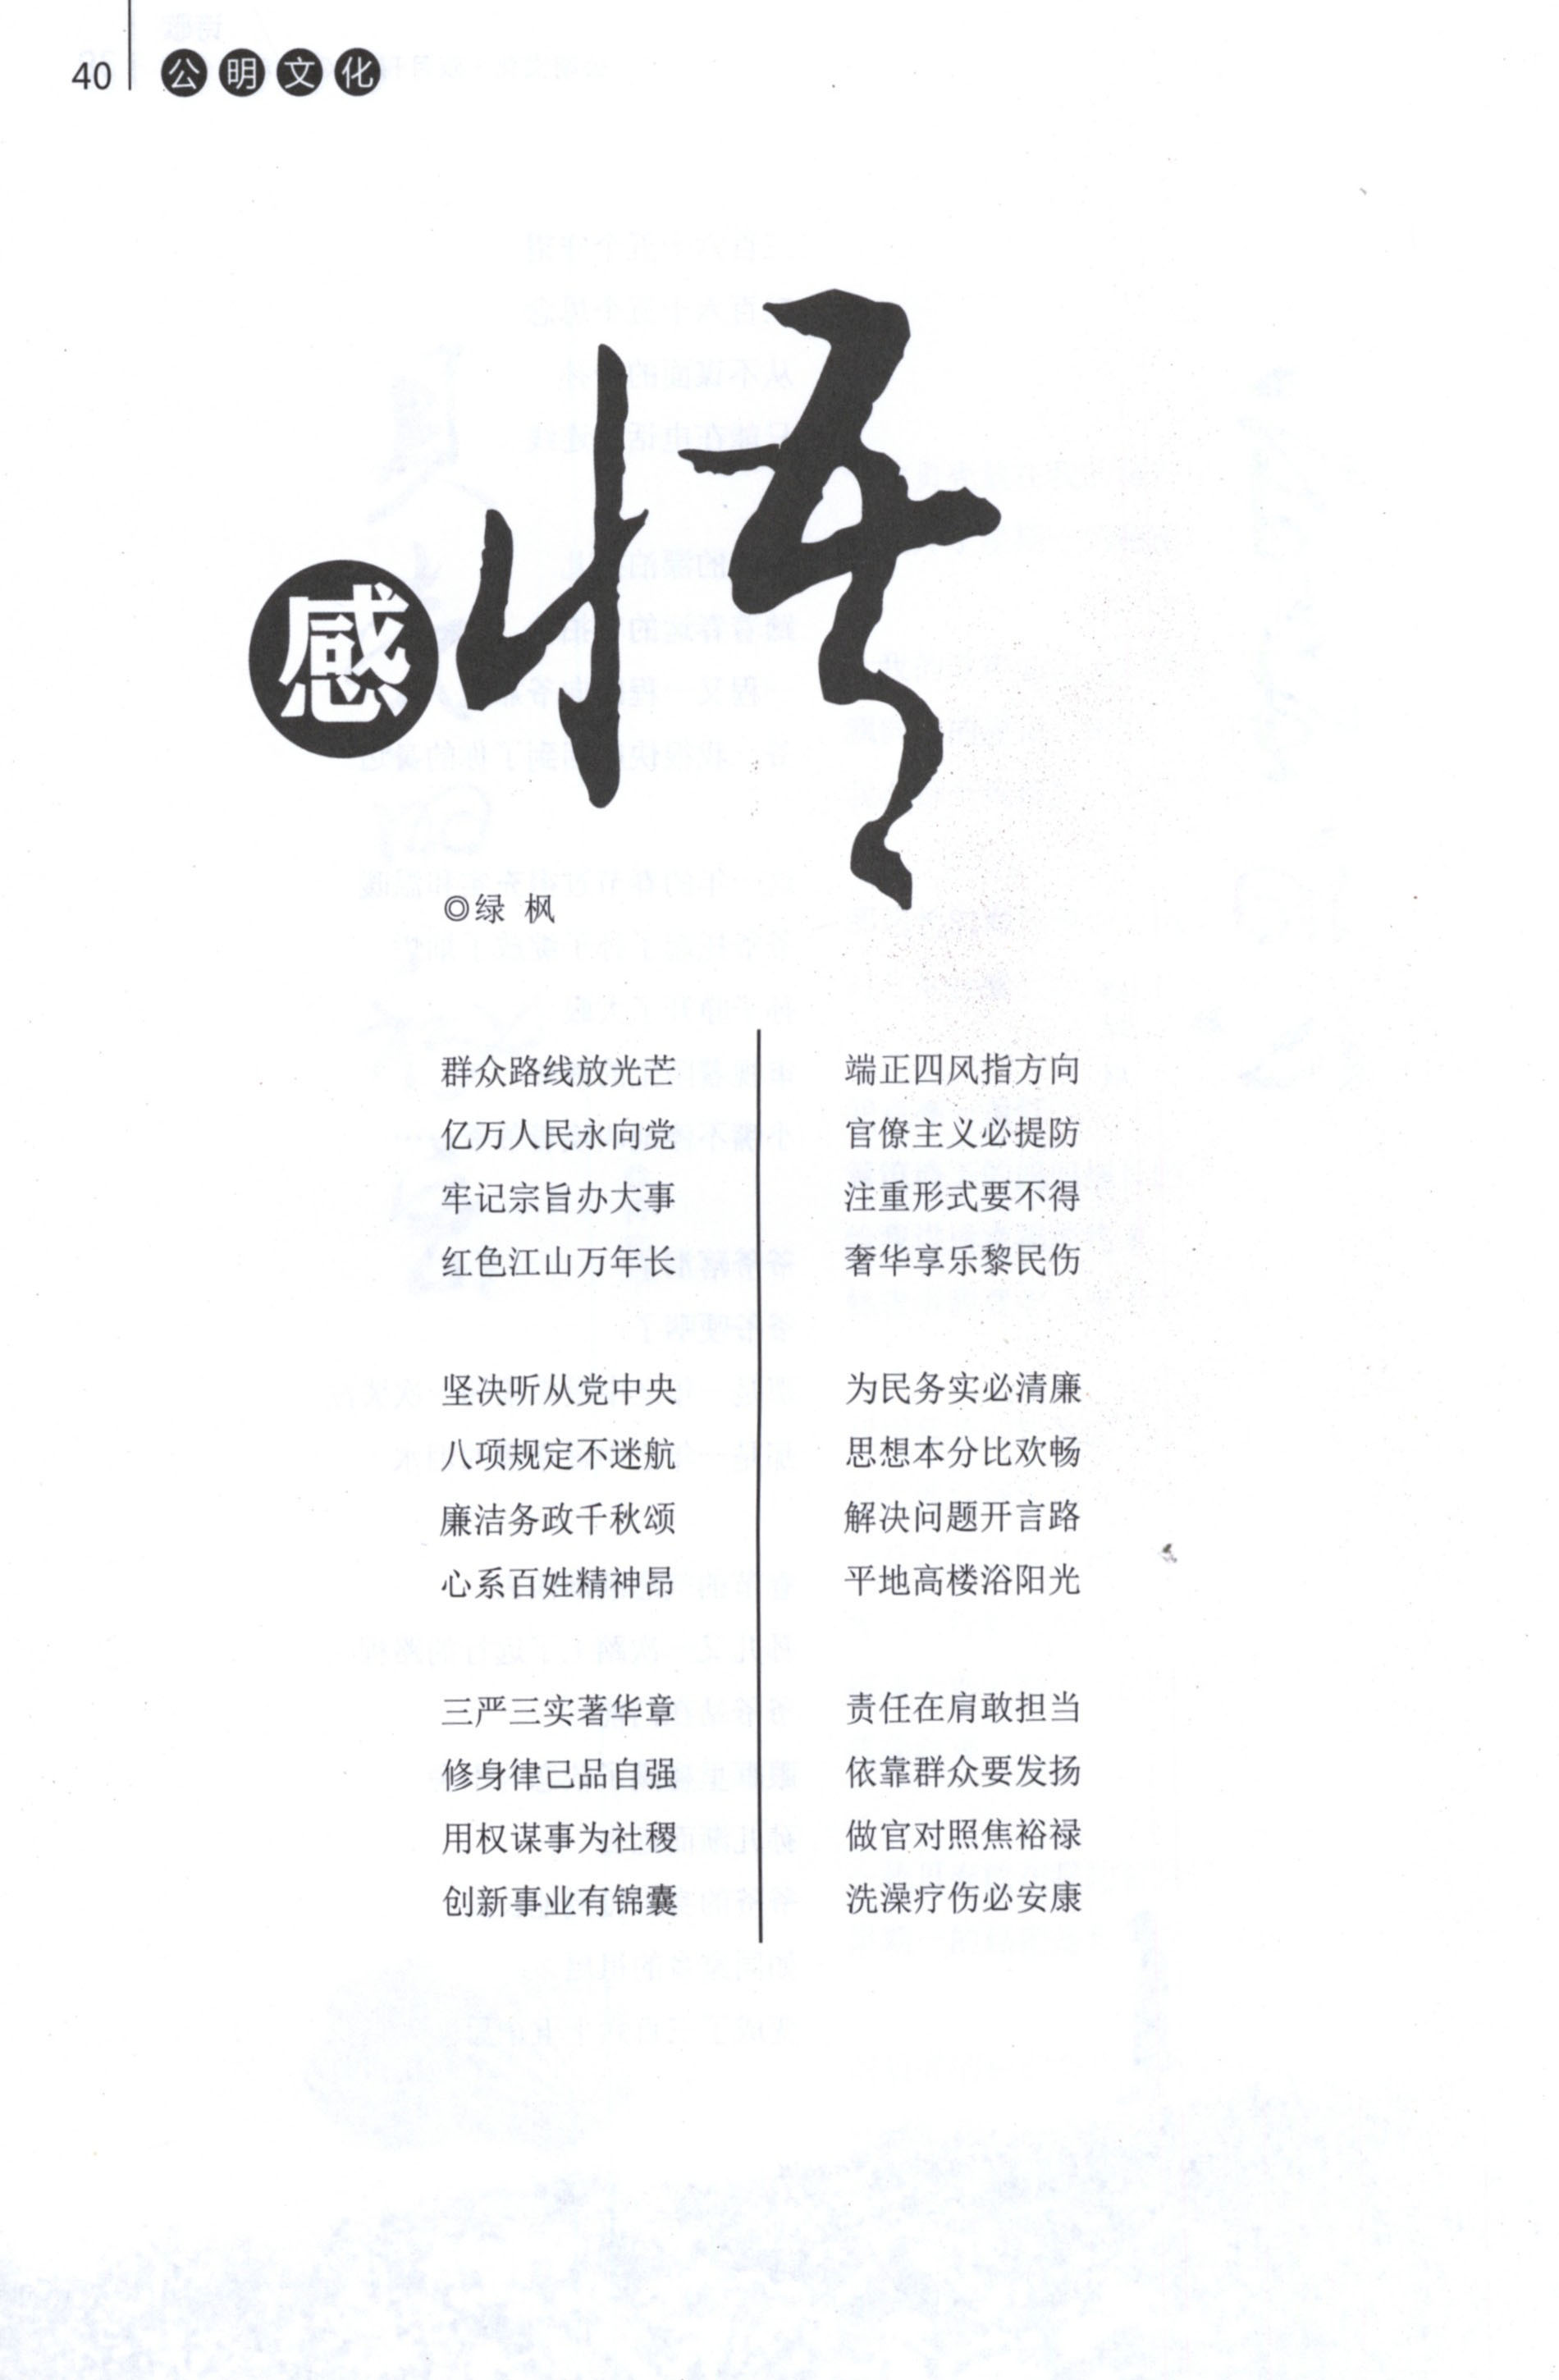 40 公明文化
感悟
◎绿 枫
群众路线放光芒
亿万人民永向党
牢记宗旨办大事
红色江山万年长
坚决听从党中央
八项规定不迷航
廉洁务政千秋颂
心系百姓精神昂
三严三实著华章
修身律己品自强
用权谋事为社稷
创新事业有锦囊
端正四风指方向
官僚主义必提防
注重形式要不得
奢华享乐黎民伤
为民务实必清廉
思想本分比欢畅
解决问题开言路
平地高楼浴阳光
责任在肩敢担当
依靠群众要发扬
做官对照焦裕禄
洗澡疗伤必安康